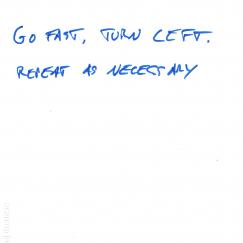 Go FAST, TURN LEFT.
REPEAT AS NECESSARY